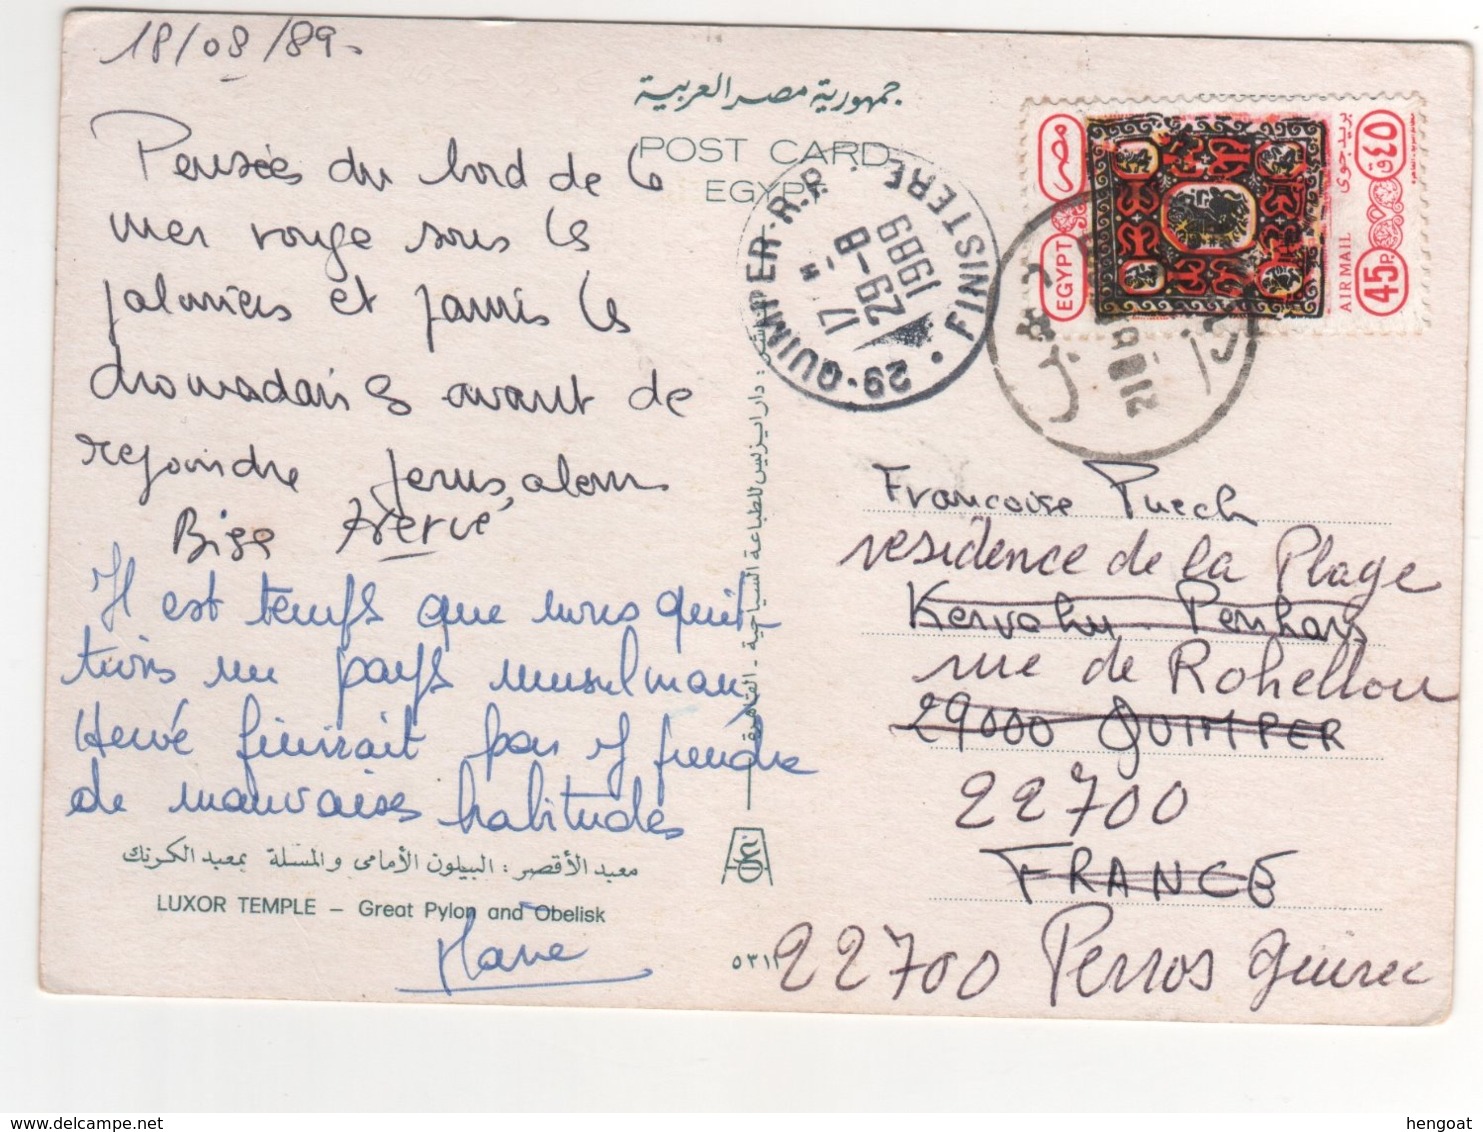 18/08/89.
Pensées du bord de la
mer rouge sous les
palmiers et parmis les
dromadaires avant de
rejoindre Jerusalem
Bise Hervé
Il est temps que nous quit-
tions un pays musulman
Hervé finirait par y prendre
de mauvaises habitudes
معبد الأقصر : البيلون الأمامى والمسلة بمعبد الكرنك
LUXOR TEMPLE – Great Pylon and Obelisk
جمهورية مصر العربية
POST CARD
EGYPT
29-QUIMPER-R.P. FINISTERE
17 H
29-8
1989
مصر
EGYPT
بريد جوى
AIR MAIL
٤٥ق
45P.
دار ايزيس للطباعة السياحية - القاهرة
٥٣١
Francoise Puech
residence de la Plage
Kervahu Penhars
rue de Rohellou
29000 QUIMPER
22700
FRANCE
22700 Perros Guirec
hengoat